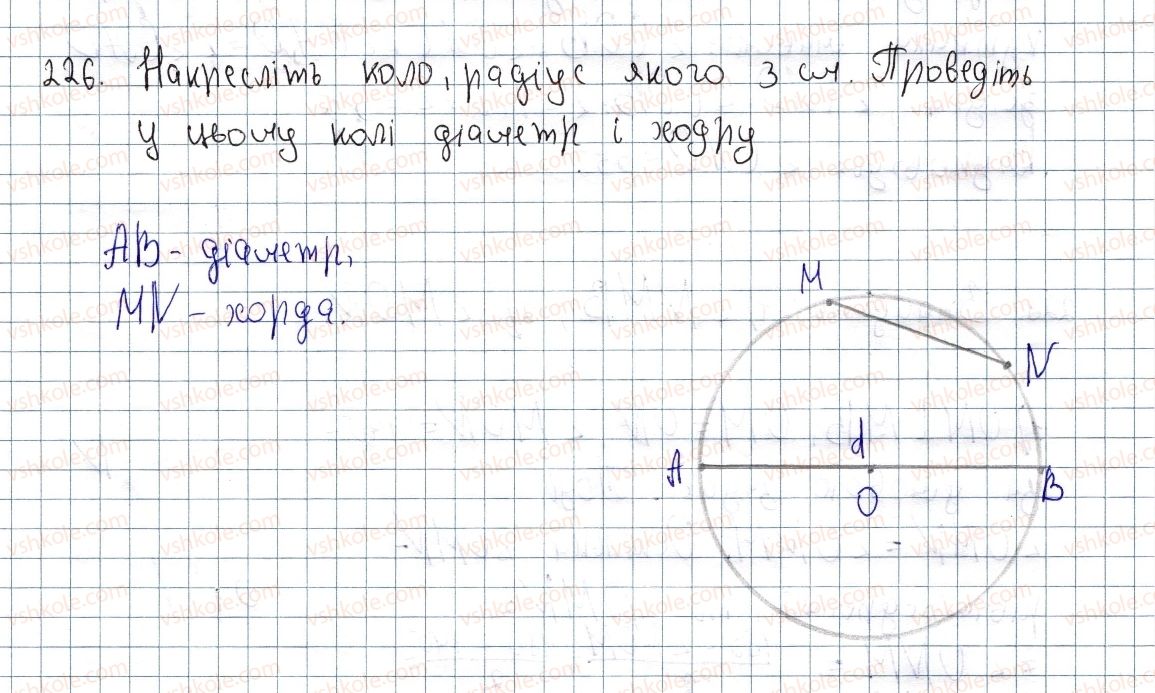 226. Накресліть коло, радіус якого 3 см. Проведіть
у цьому колі діаметр і ходру
AB - діаметр,
MN - хорда.
M
N
d
A
B
O
vshkole.com